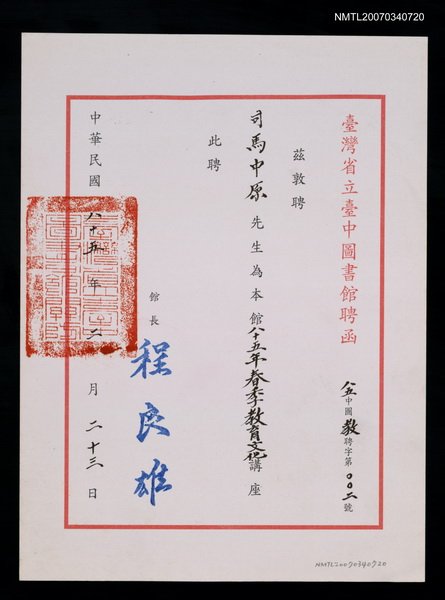 NMTL20070340720
臺灣省立臺中圖書館聘函
八五中圖教聘字第00二號
茲敦聘
司馬中原先生為本館八十五年春季教育文化講座
此聘
館長 程良雄
中華民國八十五年二月二十三日
NMTL20070340720